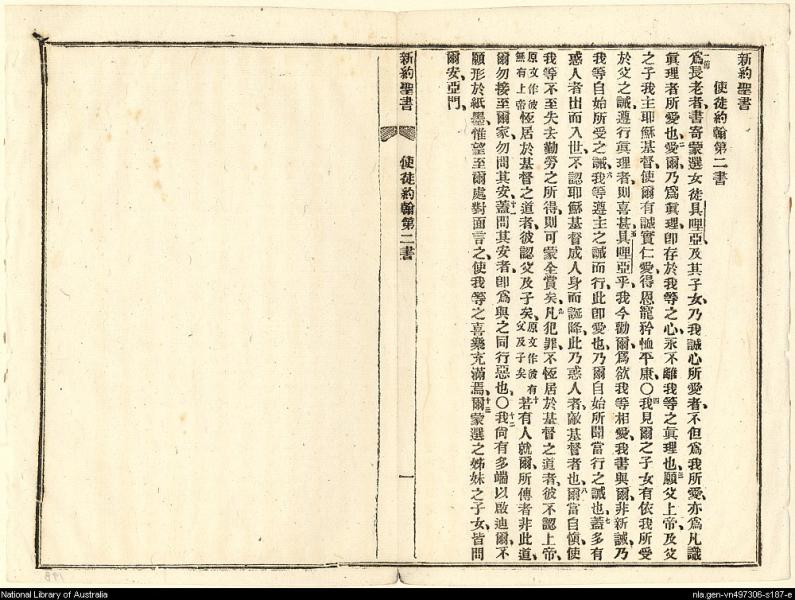 新約聖書
使徒約翰第二書
一節爲長老者、書寄蒙選女徒具哩亞及其子女、乃我誠心所愛者、不但爲我所愛、亦爲凡識
眞理者所愛也、二愛爾乃爲眞理、卽存於我等之心、永不離我等之眞理也、三願父上帝、及父
之子我主耶穌基督、使爾有誠實仁愛、得恩寵矜恤平康、〇四我見爾之子女、有依我所受
於父之誡、遵行眞理者、則喜甚、五具哩亞乎、我今勸爾、爲欲我等相愛、我書與爾、非新誡、乃
我等自始所受之誡、六我等遵主之誡而行、此卽愛也、乃爾自始所聞當行之誡也、七蓋多有
惑人者出而入世、不認耶穌基督成人身而誕降、此乃惑人者、敵基督者也、八爾當自愼、使
我等不至失去勤勞之所得、則可蒙全賞矣、九凡犯罪不恆居於基督之道者、彼不認上帝、
原文作彼無有上帝恆居於基督之道者、彼認父及子矣、原文作彼有父及子矣十若有人就爾、所傳者非此道、
爾勿接至爾家、勿問其安、十一蓋問其安者、卽爲與之同行惡也、〇十二我尙有多端以啟迪爾、不
願形於紙墨、惟望至爾處、對面言之、使我等之喜樂充滿焉、十三爾蒙選之姊妹之子女、皆問
爾安、亞門、
新約聖書
使徒約翰第二書
一
National Library of Australia
nla.gen-vn497306-s187-e